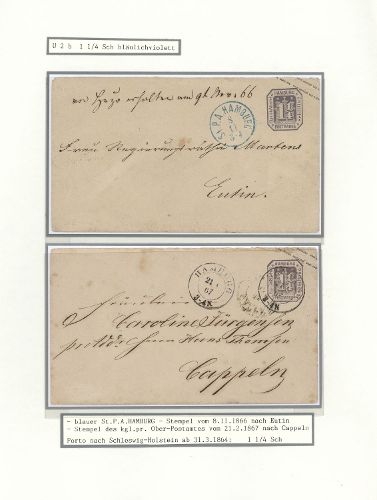 U 2 b 1 1/4 Sch bläulichviolett
von Hugo erhalten am 9t Nov. 66
HAMBURG
1 1/4
POSTMARKE
St.P.A.HAMBURG
8
11
Frau Regierungsräthin Martens
Eutin.
HAMBURG
21
67
HAMBURG
1 1/4
POSTMARKE
Fräulein
Caroline Jürgensen
Herrn Hans Thomsen
Cappeln
- blauer St.P.A.HAMBURG - Stempel vom 8.11.1866 nach Eutin
- Stempel des kgl.pr. Ober-Postamtes vom 21.2.1867 nach Cappeln
Porto nach Schleswig-Holstein ab 31.3.1864: 1 1/4 Sch